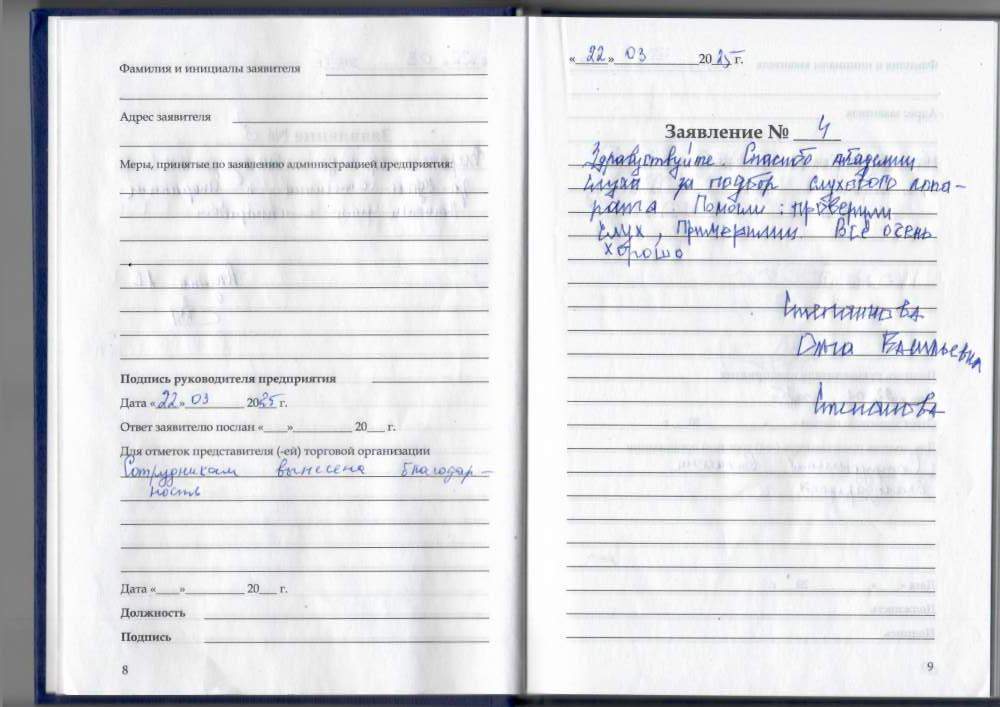 Фамилия и инициалы заявителя
Адрес заявителя
Меры, принятые по заявлению администрацией предприятия:
Подпись руководителя предприятия
Дата «22» 03 2025 г.
Ответ заявителю послан «___»__________ 20___ г.
Для отметок представителя (-ей) торговой организации
Сотрудникам вынесена благодар-
ность
Дата «____»__________ 20___ г.
Должность
Подпись
8
« 22 » 03 2025 г.
Заявление № 4
Здравствуйте. Спасибо Академии
слуха за подбор слухового аппа-
рата. Помогли: проверили
слух, примерили. Всё очень
хорошо
Степанова
Ольга Васильевна
Степанова
9